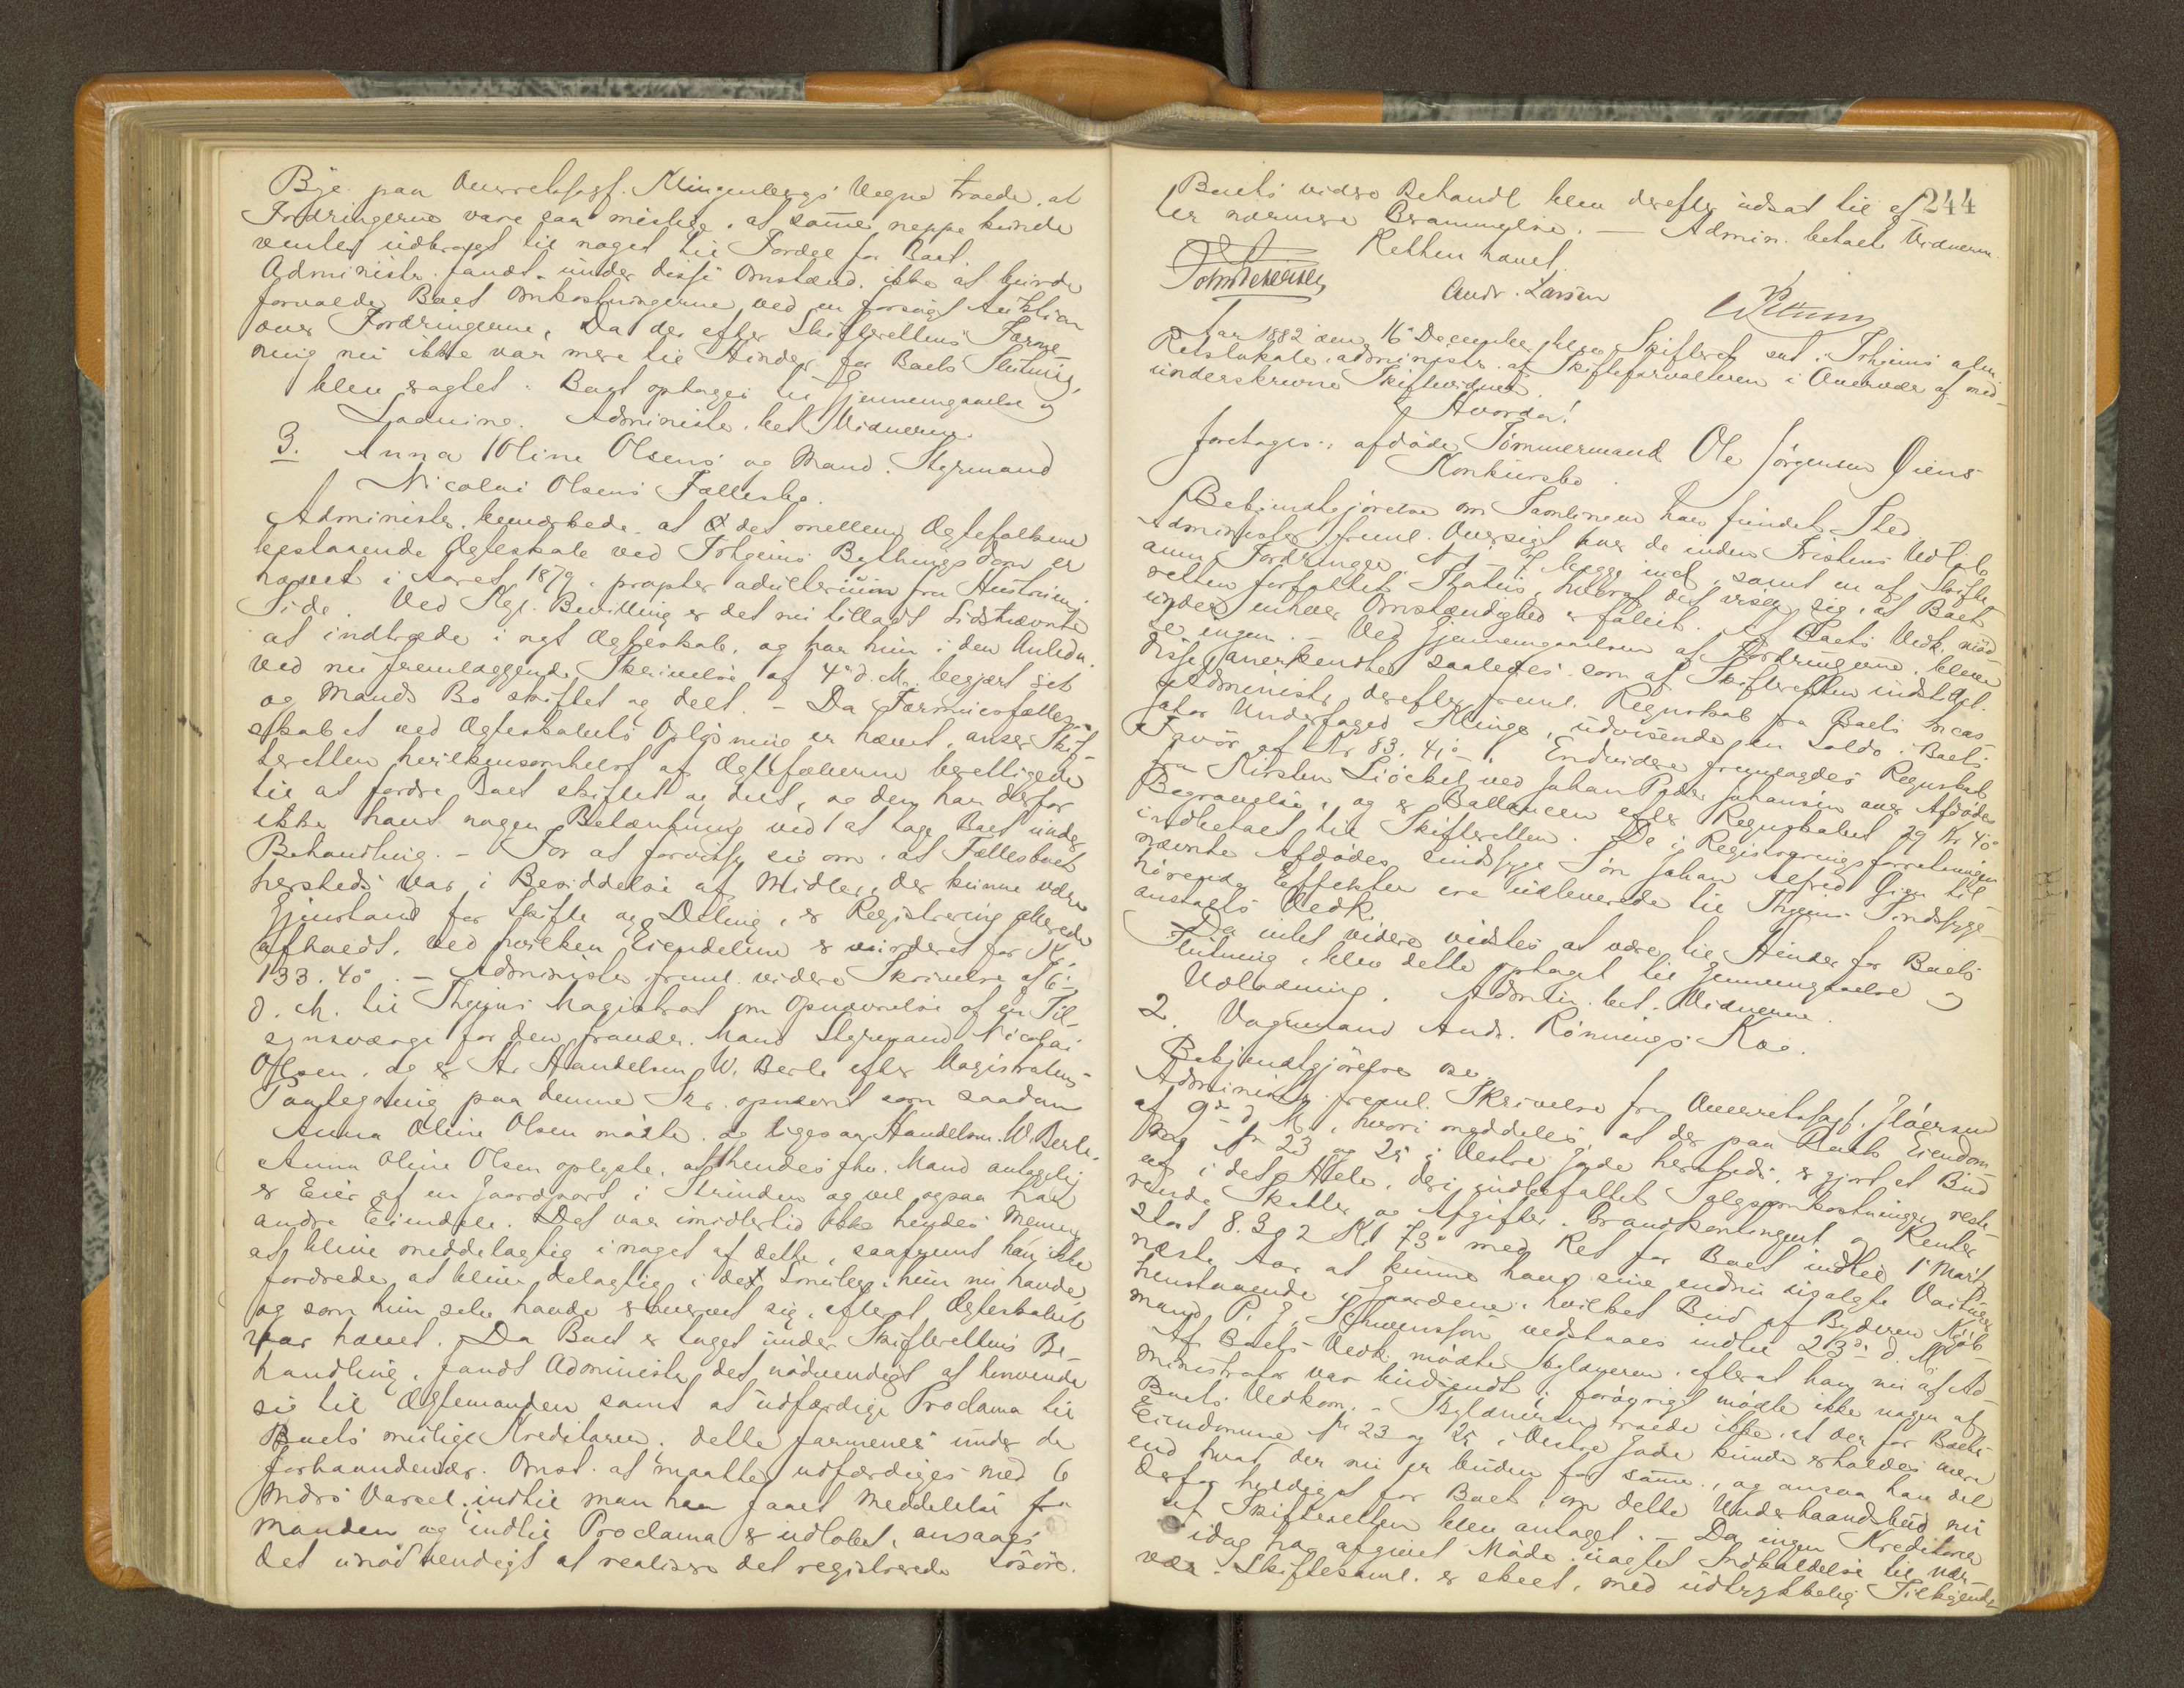 Bÿe paa Overretssagf. Klingenbergs Vegne troede, at
Fordringerne vare saa mislige, at samme neppe kunde
ventes udbragt til noget til Fordel for Boet.
Administr. fandt under disse Omstænd. ikke at burde
forvolde Boet Omkostningerne ved en forsøgt Auktion
over Fordringerne, Da der efter Skifterettens Forme
ning nu ikke var mere til Hinder for Boets Slutning,
blev sagtet. Boet optages til Gjennemgaaelse og
Ladning. Administr. bet Vidnerne.
3. Anna Oline Olsens og Mand. Styrmand
Nicolai Olsens Fællesbo.
Administr. bemærkede at det mellem Ægtefolkene
bestaaende Ægteskab ved Trhjems Bythings Dom er
hævet i Aaret 1879, propter adulterium fra Hustruens
Side. Ved Kgl. Bevilling er det nu tilladt Sidstnævnte
at indtræde i nyt Ægteskab, og har hun i den Anledn.
ved nu fremlæggende Skrivelse af 4de d. M. begjært sit
og Mands Bo skiftet og delt. - Da Formuesfælles-
skabet ved Ægteskabets Opløsning er hævet, anser Skif-
teretten hvilkensomhelst af Ægtefællerne berettiget
til at fordre Boet skiftet og delt, og den har derfor
ikke havt nogen Betænkning ved at tage Boet under
Behandling. - For at forvisse sig om, at Fællesboet
hersteds var i Besiddelse af Midler, der kunne være
Gjenstand for Skifte og Deling, er Registrering allerede
afholdt, ved hvilken Eiendelene er vurderet for Kr.
133. 40. - Administr. freml. videre Skrivelse af 6-
d. M. til Thjems Magistrat om Opnævnelse af en Til-
synsværge for den fraværr. Mand Styrmand Nicolai
Olsen, og er Hr. Handelsm. W. Berle efter Magistratens
Paategning paa denne Skr. opnævnt som saadan
Anna Oline Olsen mødte og ligesaa Handelsm. W. Berle.
Anna Oline Olsen oplyste, at hendes fhv. Mand antagelig
er Eier af en Gaardpart i Strinden og vel ogsaa har
andre Eiendele. Det var imidlertid ikke hendes Mening
at blive meddelagtig i noget af dette, saafremt han ikke
fordrede at blive delagtig i det Smules hun nu havde
og som hun selv havde erhvervet sig, efterat Ægteskabet
var hævet. Da Boet er taget under Skifterettens Be-
handling, fandt Administr. det nødvendigt at henvende
sig til Ægtemanden samt at udfærdige Proclama til
Boets mulige Kreditorer. dette formenes under de
forhaandenvær. Omst. at maatte udfærdiges med 6
Mdrs Varsel. indtil man har faaet Meddelelse fra
Manden og indtil Proclama er udløbet, ansaaes
det unødvendigt at realisere det registrerede Løsøre.
244
Boets videre Behandl blev derefter udsat til ef
ter nærmere Berammelse. - Admin. betalte Vidnerne
Retten hævet.
Andr. Larsen
Aar 1882 den 16de December blev Skifteret sat i Trhjems alm.
Retslokale, administr. af Skifteforvalteren i Overvær af med-
underskrevne Skiftevidner.
Hvorda!
foretages: afdøde Tømmermand Ole Jørgensen Øiens
Konkursbo.
Bekjendtgjørelse om Samlingen har fundet Sted
Administr. freml. Oversigt over de inden Fristens Udløb
anm. Fordringer N 1 - 7 begge incl, samt en af Skifte-
retten forfattet Status, hvoraf det viser sig, at Boet
under enhver Omstændighed er fallit. - For Boets Vedk. mød-
te ingen. - Ved Gjennemgaaelsen af Fordringerne bleve
disse anerkjendte saaledes som af Skifteretten indstillet.
Administr. derefter freml. Regnskab fra Boets Incas-
sator Underfoged Klinge, udvisende en Saldo i Boets
Favør af Kr 83. 41. Endvidere fremlagdes Regnskab
fra Kirsten Siöckel ved Johan Peder Johansen over Afdødes
Begravelse, og er Ballancen efter Regnskabet 29 Kr 40
indbetalt til Skifteretten. De i Registreringsforretningen
nævnte Afdødes sindssyge Søn Johan Alfred Øien til-
hørende Effekter ere udleverede til Trhjems Sindssyge-
anstalts Vedk.
Da intet videre vidstes at være til Hinder for Boets
Slutning, blev dette optaget til Gjennemgaaelse og
Udlodning. Admin. bet. Vidnerne.
2. Vognmand Andr. Rønnings Kbo.
Bekjendtgjørelse
Administr. freml. Skrivelse fra Overretssagf. Iversen
af 9de d. M., hvori meddeles, at der paa Boets Eiendom-
me N 23 og 25 i Vestre Gade hersteds er gjort et Bud
af i det Hele, deri indbefattet Salgsomkostninger, reste-
rende Skatter og Afgifter, Brandkontingent og Renter
8. 392 Kr 73 med Ret for Boet indtil 1 Marts
næste Aar at kunne have sine endnu usolgte Varer
henstaaende i Gaardene, hvilket Bud af Byderen Kjøb-
mand P. J. Schwensson vedstaaes indtil 23de d. M.
Af Boets Vedk. mødte Skyldneren, efterat han nu af Ad-
ministrator var budsendt, forøvrigt mødte ikke nogen af
Boets Vedkom. - Skyldneren troede ikke, at der for Boets
Eiendomme N 23 og 25 i Vestre Gade kunde erholdes mere
end hvad der nu er buden for samme, og ansaa han det
derfor heldigst for Boet, om dette Underhaandsbud nu
af Skifteretten blev antaget. - Da ingen Kreditorer
idag har afgivet Møde, uagtet Indkaldelse til nær-
vær. Skiftesaml. er skeet, med udtrykkelig Tilkjende-